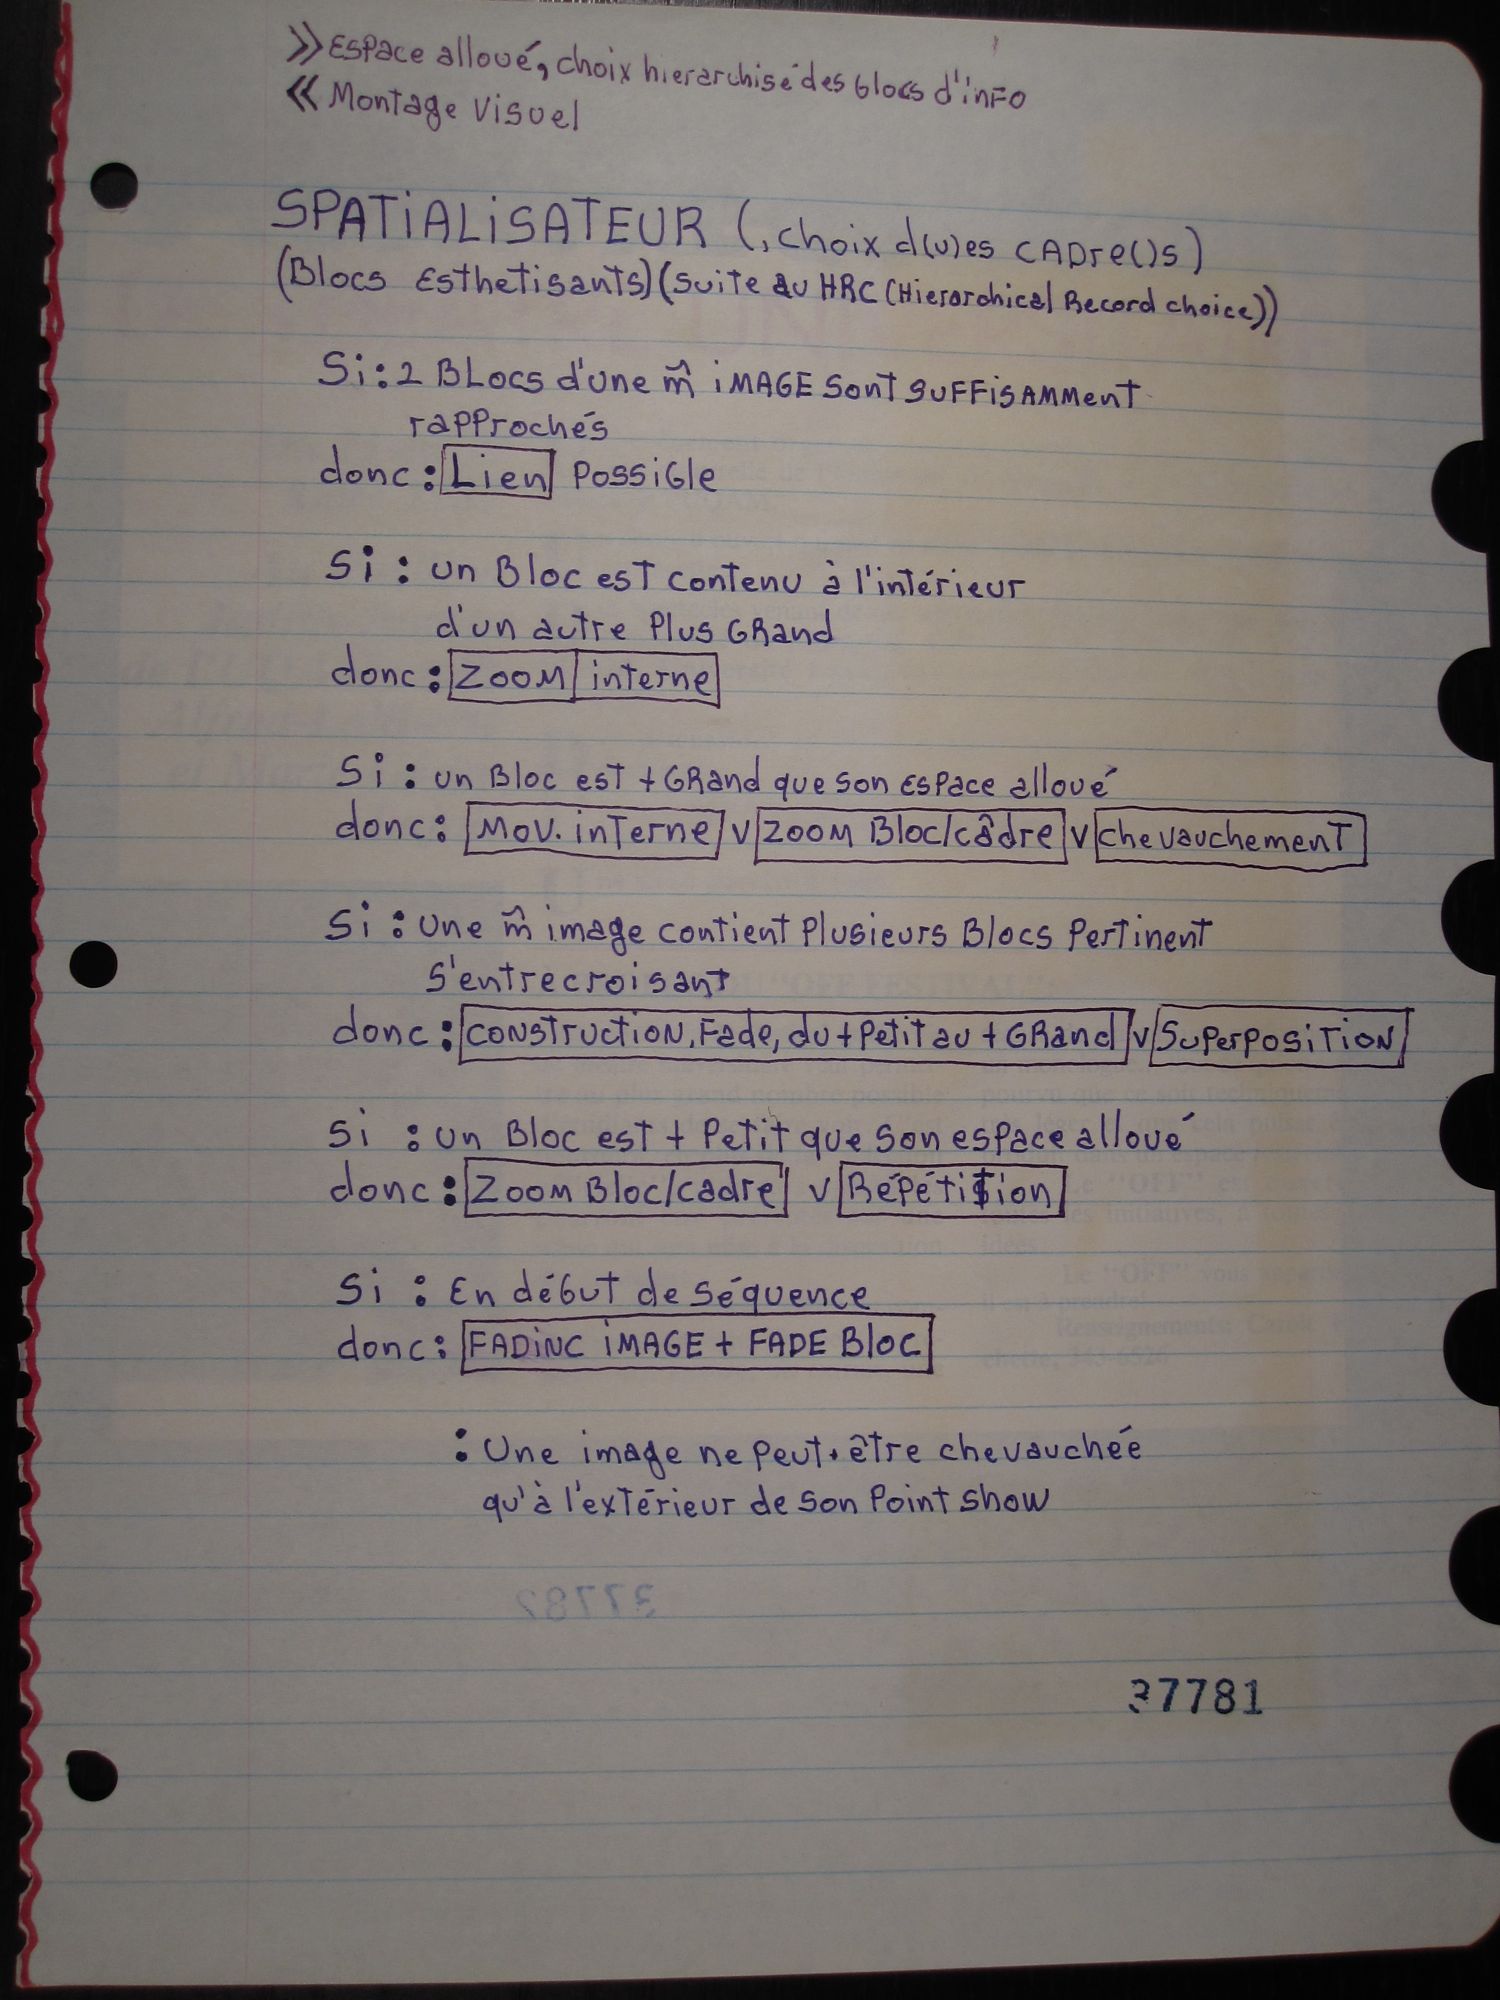 >> Espace alloué, choix hierarchisé des blocs d'info
<< Montage visuel
SPATIALISATEUR (, choix d(u)es CADre()s)
(Blocs Esthetisants) (suite au HRC (Hierarchical Record choice))
Si : 2 BLocs d'une m̂ iMAGE sont suffisamment
rapprochés
donc : Lien possible
Si : un Bloc est contenu à l'intérieur
d'un autre Plus GRand
donc : ZOOM interne
Si : un Bloc est + GRand que son espace alloué
donc : Mov. interne v ZOOM Bloc/câdre v chevauchement
Si : Une m̂ image contient Plusieurs Blocs Pertinent
s'entrecroisant
donc : construction, Fade, du + Petit au + GRand v SuperposiTioN
Si : un Bloc est + Petit que son espace alloué
donc : Zoom Bloc/cadre v Répétition
Si : En début de séquence
donc : FADiNG iMAGE + FADE Bloc
: Une image ne peut être chevauchée
qu'à l'extérieur de son Point show
37782
37781